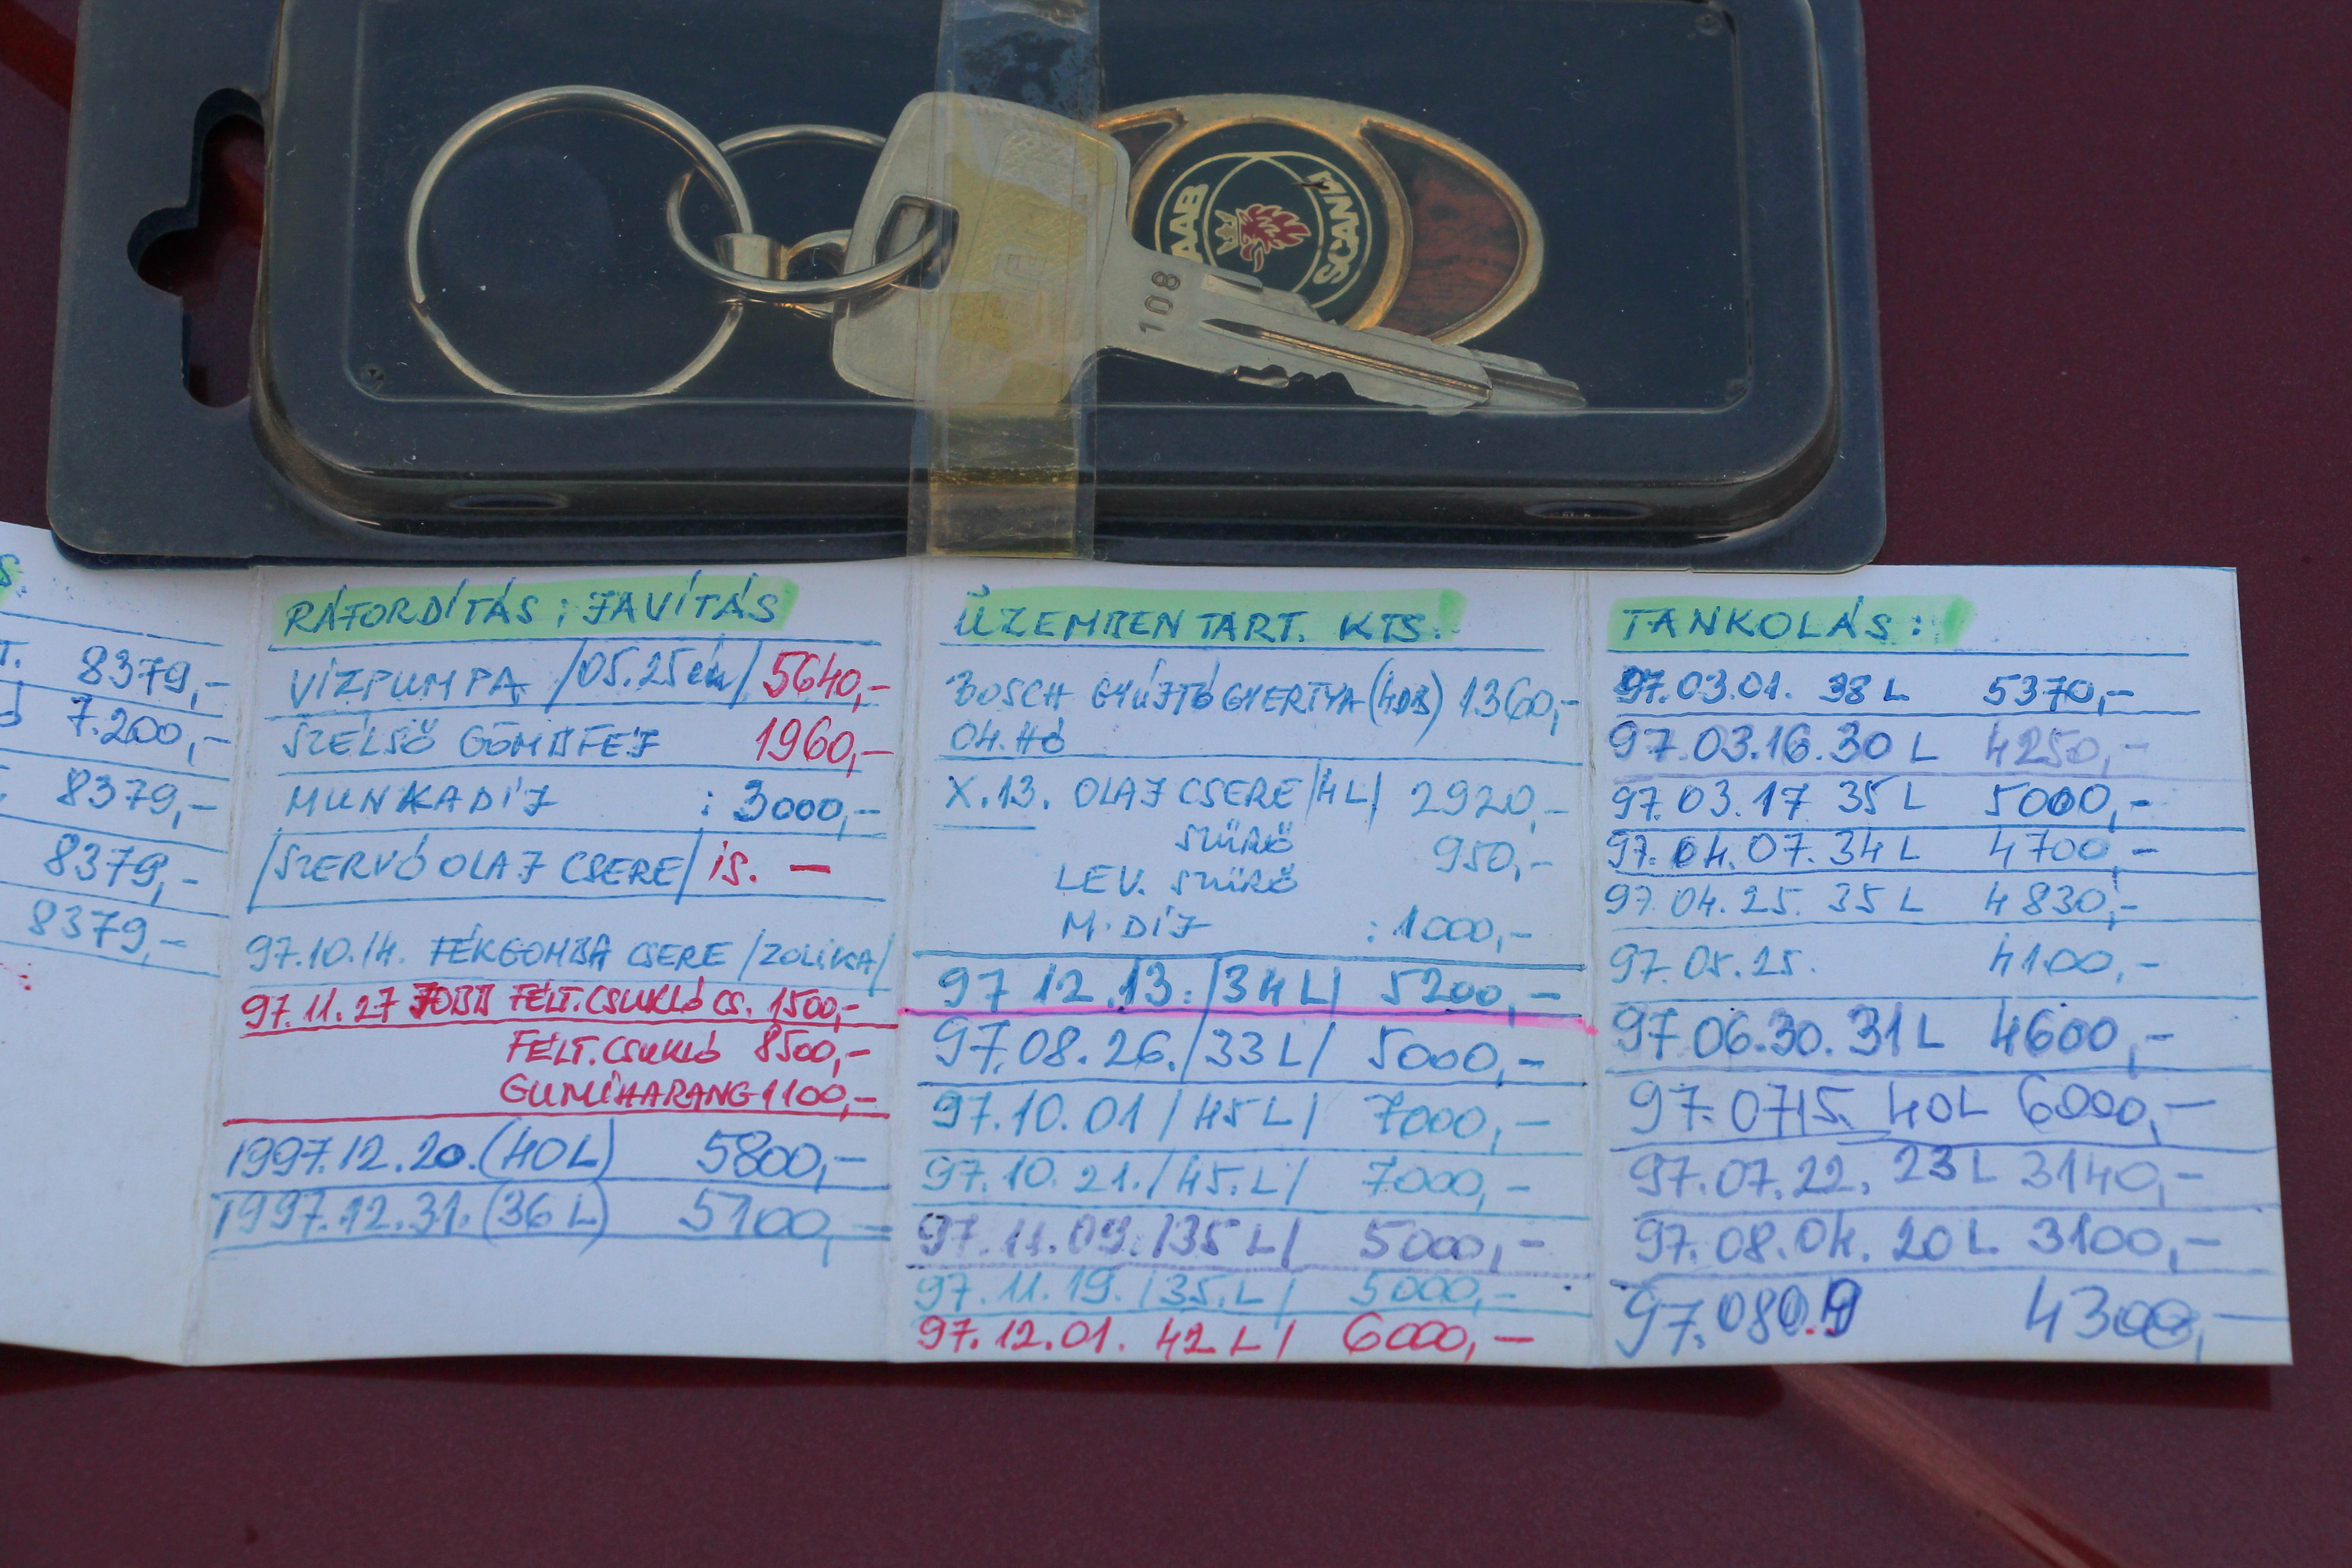 SAAB
SCANIA
108
S.
T. 8379,-
7.200,-
8379,-
8379,-
8379,-
RÁFORDÍTÁS ; JAVÍTÁS
VÍZPUMPA /05.25én/ 5640,-
SZÉLSŐ GÖMBFEJ 1960,-
MUNKADÍJ : 3000,-
/SZERVÓ OLAJ CSERE/ is. -
97.10.14. FÉKGOMBA CSERE /ZOLIKA/
97.11.27 JOBB FÉLT.CSUKLÓ CS. 1500,-
FÉLT.CSUKLÓ 8500,-
GUMIHARANG 1100,-
1997.12.20.(40L) 5800,-
1997.12.31.(36L) 5100,-
ÜZEMBENTART. KTS:
BOSCH GYÚJTÓGYERTYA (4DB) 1360,-
04.HÓ
X.13. OLAJ CSERE /4L/ 2920,-
SZŰRŐ 950,-
LEV. SZŰRŐ
M.DÍJ : 1000,-
97 12.13. /34L/ 5200,-
97.08.26. /33L/ 5000,-
97.10.01 /45L/ 7000,-
97.10.21. /45.L/ 7000,-
97.11.09. /35L/ 5000,-
97.11.19. /35.L/ 5000,-
97.12.01. 42L/ 6000,-
TANKOLÁS:
97.03.01. 38L 5370,-
97.03.16. 30L 4250,-
97.03.17 35L 5000,-
97.04.07. 34L 4700,-
97.04.25. 35L 4830,-
97.05.25. 4100,-
97.06.30. 31L 4600,-
97.0715. 40L 6000,-
97.07.22. 23L 3140,-
97.08.04. 20L 3100,-
97. 4300,-